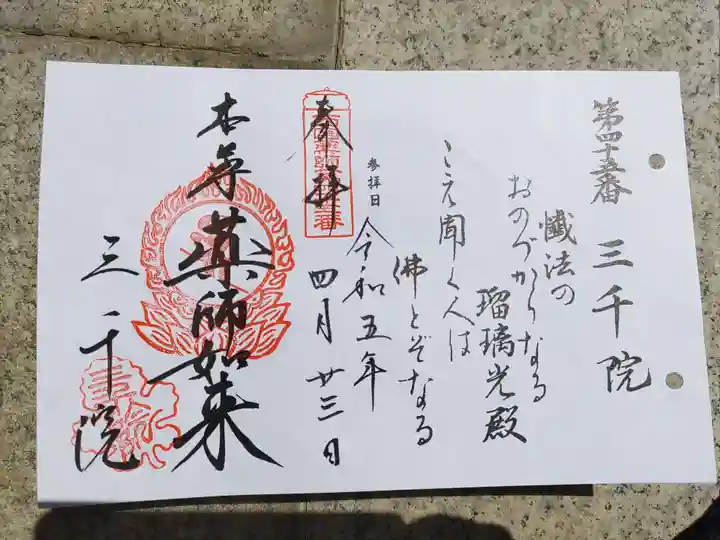 第四十五番 三千院
懺法の
瑠璃光殿
おのづからなる
こえ聞く人は
佛とぞなる
奉拝
参拝日
令和五年
四月廿三日
本尊
薬師如来
三千院